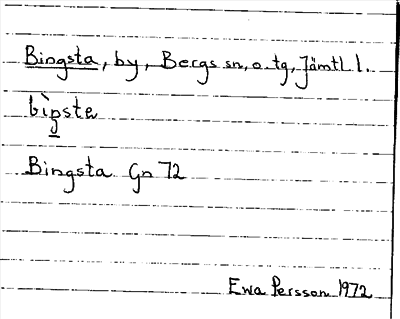 Bingsta, by, Bergs sn, o. tg, Jämtl. l.
Bingsta Gn 72
Ewa Persson 1972